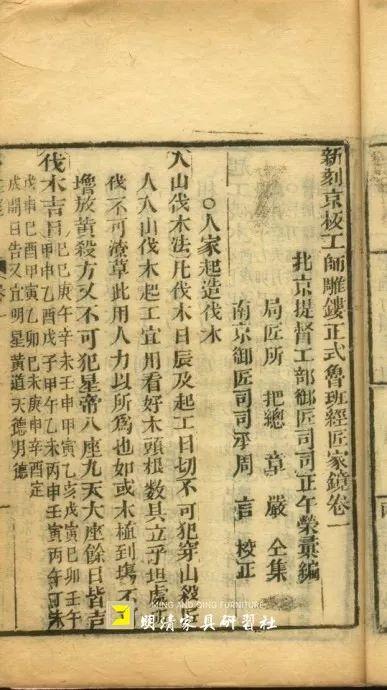 新刻京板工師雕鏤正式魯班經匠家鏡卷一
北京提督工部御匠司司正午榮彙編
局匠所把總章嚴仝集
南京御匠司司承周言校正
○人家起造伐木
入山伐木法凡伐木日辰及起工日切不可犯穿山殺匠
人入山伐木起工宜用看好木頭根數具立平坦處
伐不可潦草此用人力以所為也如或木植到塲不
放黃殺方又不可犯皇帝八座九天大座餘日皆吉
伐木吉日己巳庚午辛未壬申甲寅乙亥戊寅己卯壬午
甲申乙酉戊子甲午乙未丙申壬寅丙午丁未
戊申己酉甲寅乙卯己未庚申辛酉定
成開日吉又宜明星黃道天德月德
MING AND QING FURNITURE
明清家具研習社